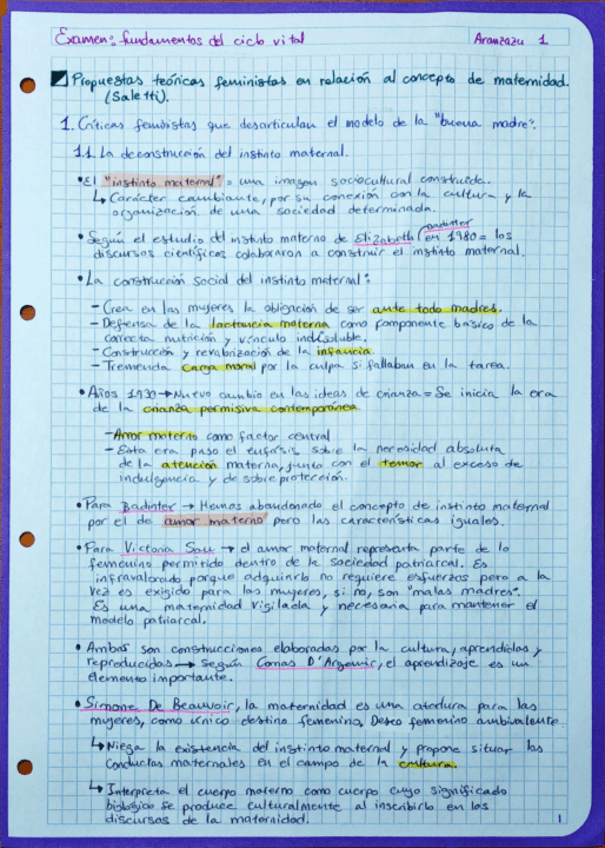 Examen: fundamentos del ciclo vital
Aranzazu 1
Propuestas teóricas feministas en relación al concepto de maternidad.
(Saletti).
1. Críticas feministas que desarticulan el modelo de la "buena madre".
1.1 La deconstrucción del instinto maternal.
• El "instinto maternal" = una imagen sociocultural construida.
↳ Carácter cambiante, por su conexión con la cultura y la
organización de una sociedad determinada.
• Según el estudio del instinto materno de Elizabeth Badinter (en 1980 = los
discursos científicos colaboraron a construir el instinto maternal.
• La construcción social del instinto maternal:
- Crea en las mujeres la obligación de ser ante todo madres.
- Defensa de la lactancia materna como componente básico de la
correcta nutrición y vínculo indisoluble.
- Construcción y revalorización de la infancia.
- Tremenda carga moral por la culpa si fallaban en la tarea.
• Años 1930 → Nuevo cambio en las ideas de crianza = Se inicia la era
de la crianza permisiva contemporánea.
- Amor materno como factor central
- Esta era puso el enfásis sobre la necesidad absoluta
de la atención materna, junto con el temor al exceso de
indulgencia y de sobreprotección.
• Para Badinter → Hemos abandonado el concepto de instinto maternal
por el de amor materno pero las características iguales.
• Para Victoria Sau → el amor maternal representa parte de lo
femenino permitido dentro de la sociedad patriarcal. Es
infravalorado porque adquirirlo no requiere esfuerzos pero a la
vez es exigido para las mujeres, si no, son "malas madres".
Es una maternidad vigilada y necesaria para mantener el
modelo patriarcal.
• Ambas son construcciones elaboradas por la cultura, aprendidas y
reproducidas → Según Comas D'Argemir, el aprendizaje es un
elemento importante.
• Simone De Beauvoir, la maternidad es una atadura para las
mujeres, como único destino femenino. Deseo femenino ambivalente.
↳ Niega la existencia del instinto maternal y propone situar las
conductas maternales en el campo de la cultura.
↳ Interpreta el cuerpo materno como cuerpo cuyo significado
biológico se produce culturalmente al inscribirlo en los
discursos de la maternidad.
1